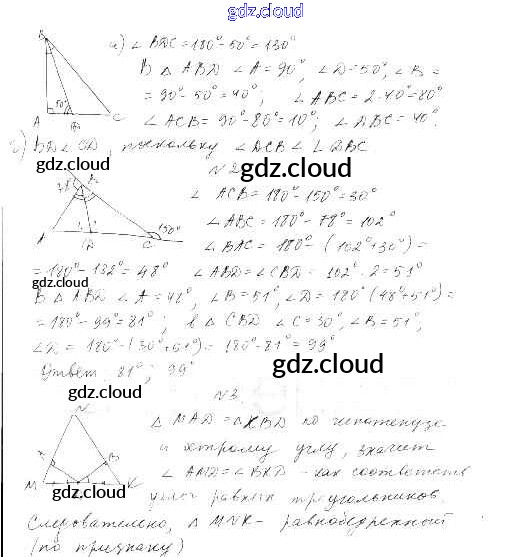 gdz.cloud
а) ∠ BDC = 180° - 50° = 130°
В △ ABD ∠ A = 90°, ∠ D = 50°, ∠ B =
= 90° - 50° = 40°; ∠ ABC = 2·40° = 80°
∠ ACB = 90° - 80° = 10°; ∠ DBC = 40°.
B
50°
A
C
б) BD < CD, поскольку ∠ DCB < ∠ DBC
gdz.cloud
gdz.cloud
N 2
∠ ACB = 180° - 150° = 30°
∠ ABC = 180° - 78° = 102°
∠ BAC = 180° - (102° + 30°) =
78°
B
150°
A
D
C
= 180° - 132° = 48° ∠ ABD = ∠ CBD = 102° : 2 = 51°
gdz.cloud
В △ ABD ∠ A = 48°, ∠ B = 51°, ∠ D = 180° (48° + 51°) =
= 180° - 99° = 81°; в △ CBD ∠ C = 30°, ∠ B = 51°,
∠ D = 180° - (30° + 51°) = 180° - 81° = 99°
gdz.cloud
Ответ 81°; 99°
gdz.cloud
N 3
N
△ MAD = △ KBD по гипотенузе
и острому углу, значит
∠ AMD = ∠ BKD - как соответств
A
B
M
K
gdz.cloud
углы равных треугольников.
Следовательно, △ MNK - равнобедренный
(по признаку)
gdz.cloud